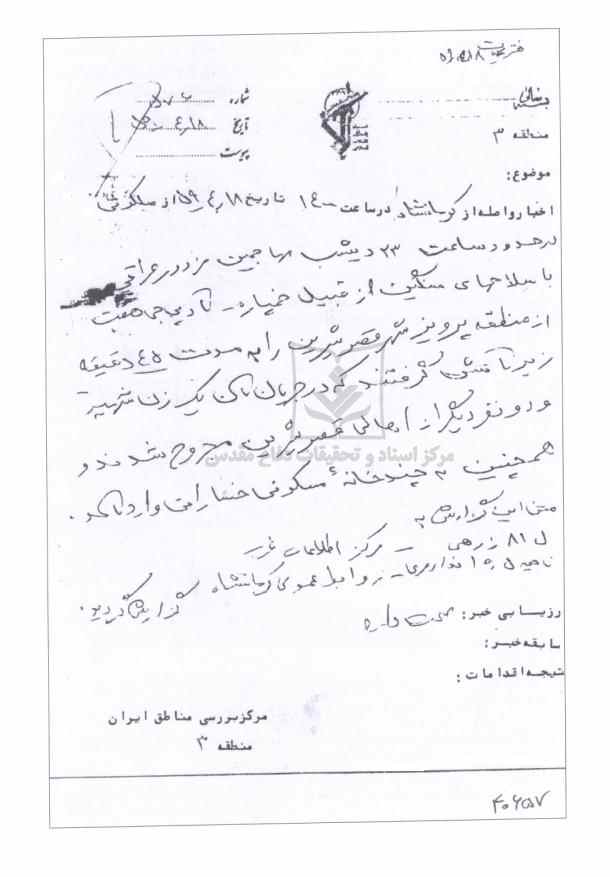 بسمه تعالی
شماره
تاریخ ۵۹/۴/۱۸
پیوست
منطقه ۳
موضوع:
اخبار واصله از کرمانشاه در ساعت ۱۴۰۰ تاریخ ۵۹/۴/۱۸ از
در حدود ساعت ۲۳ دیشب مهاجمین مزدور عراقی
با سلاحهای سنگین از قبیل خمپاره
از منطقه پرویز شهر قصرشیرین را به مدت ۴۵ دقیقه
زیر آتش گرفتند که در جریان آن یک زن شهید
و دو نفر دیگر از اهالی قصرشیرین مجروح شدند و
همچنین به چند خانه مسکونی خساراتی وارد آمد.
مرکز اسناد و تحقیقات دفاع مقدس
متن این گزارش به
ل ۸۱ زرهی – مرکز اطلاعات غرب
ناحیه ژاندارمری – روابط عمومی کرمانشاه گزارش گردید.
ارزیابی خبر: صحت دارد
سابقه خبر:
نتیجه اقدامات:
مرکز بررسی مناطق ایران
منطقه ۳
۴۰۶۵۷